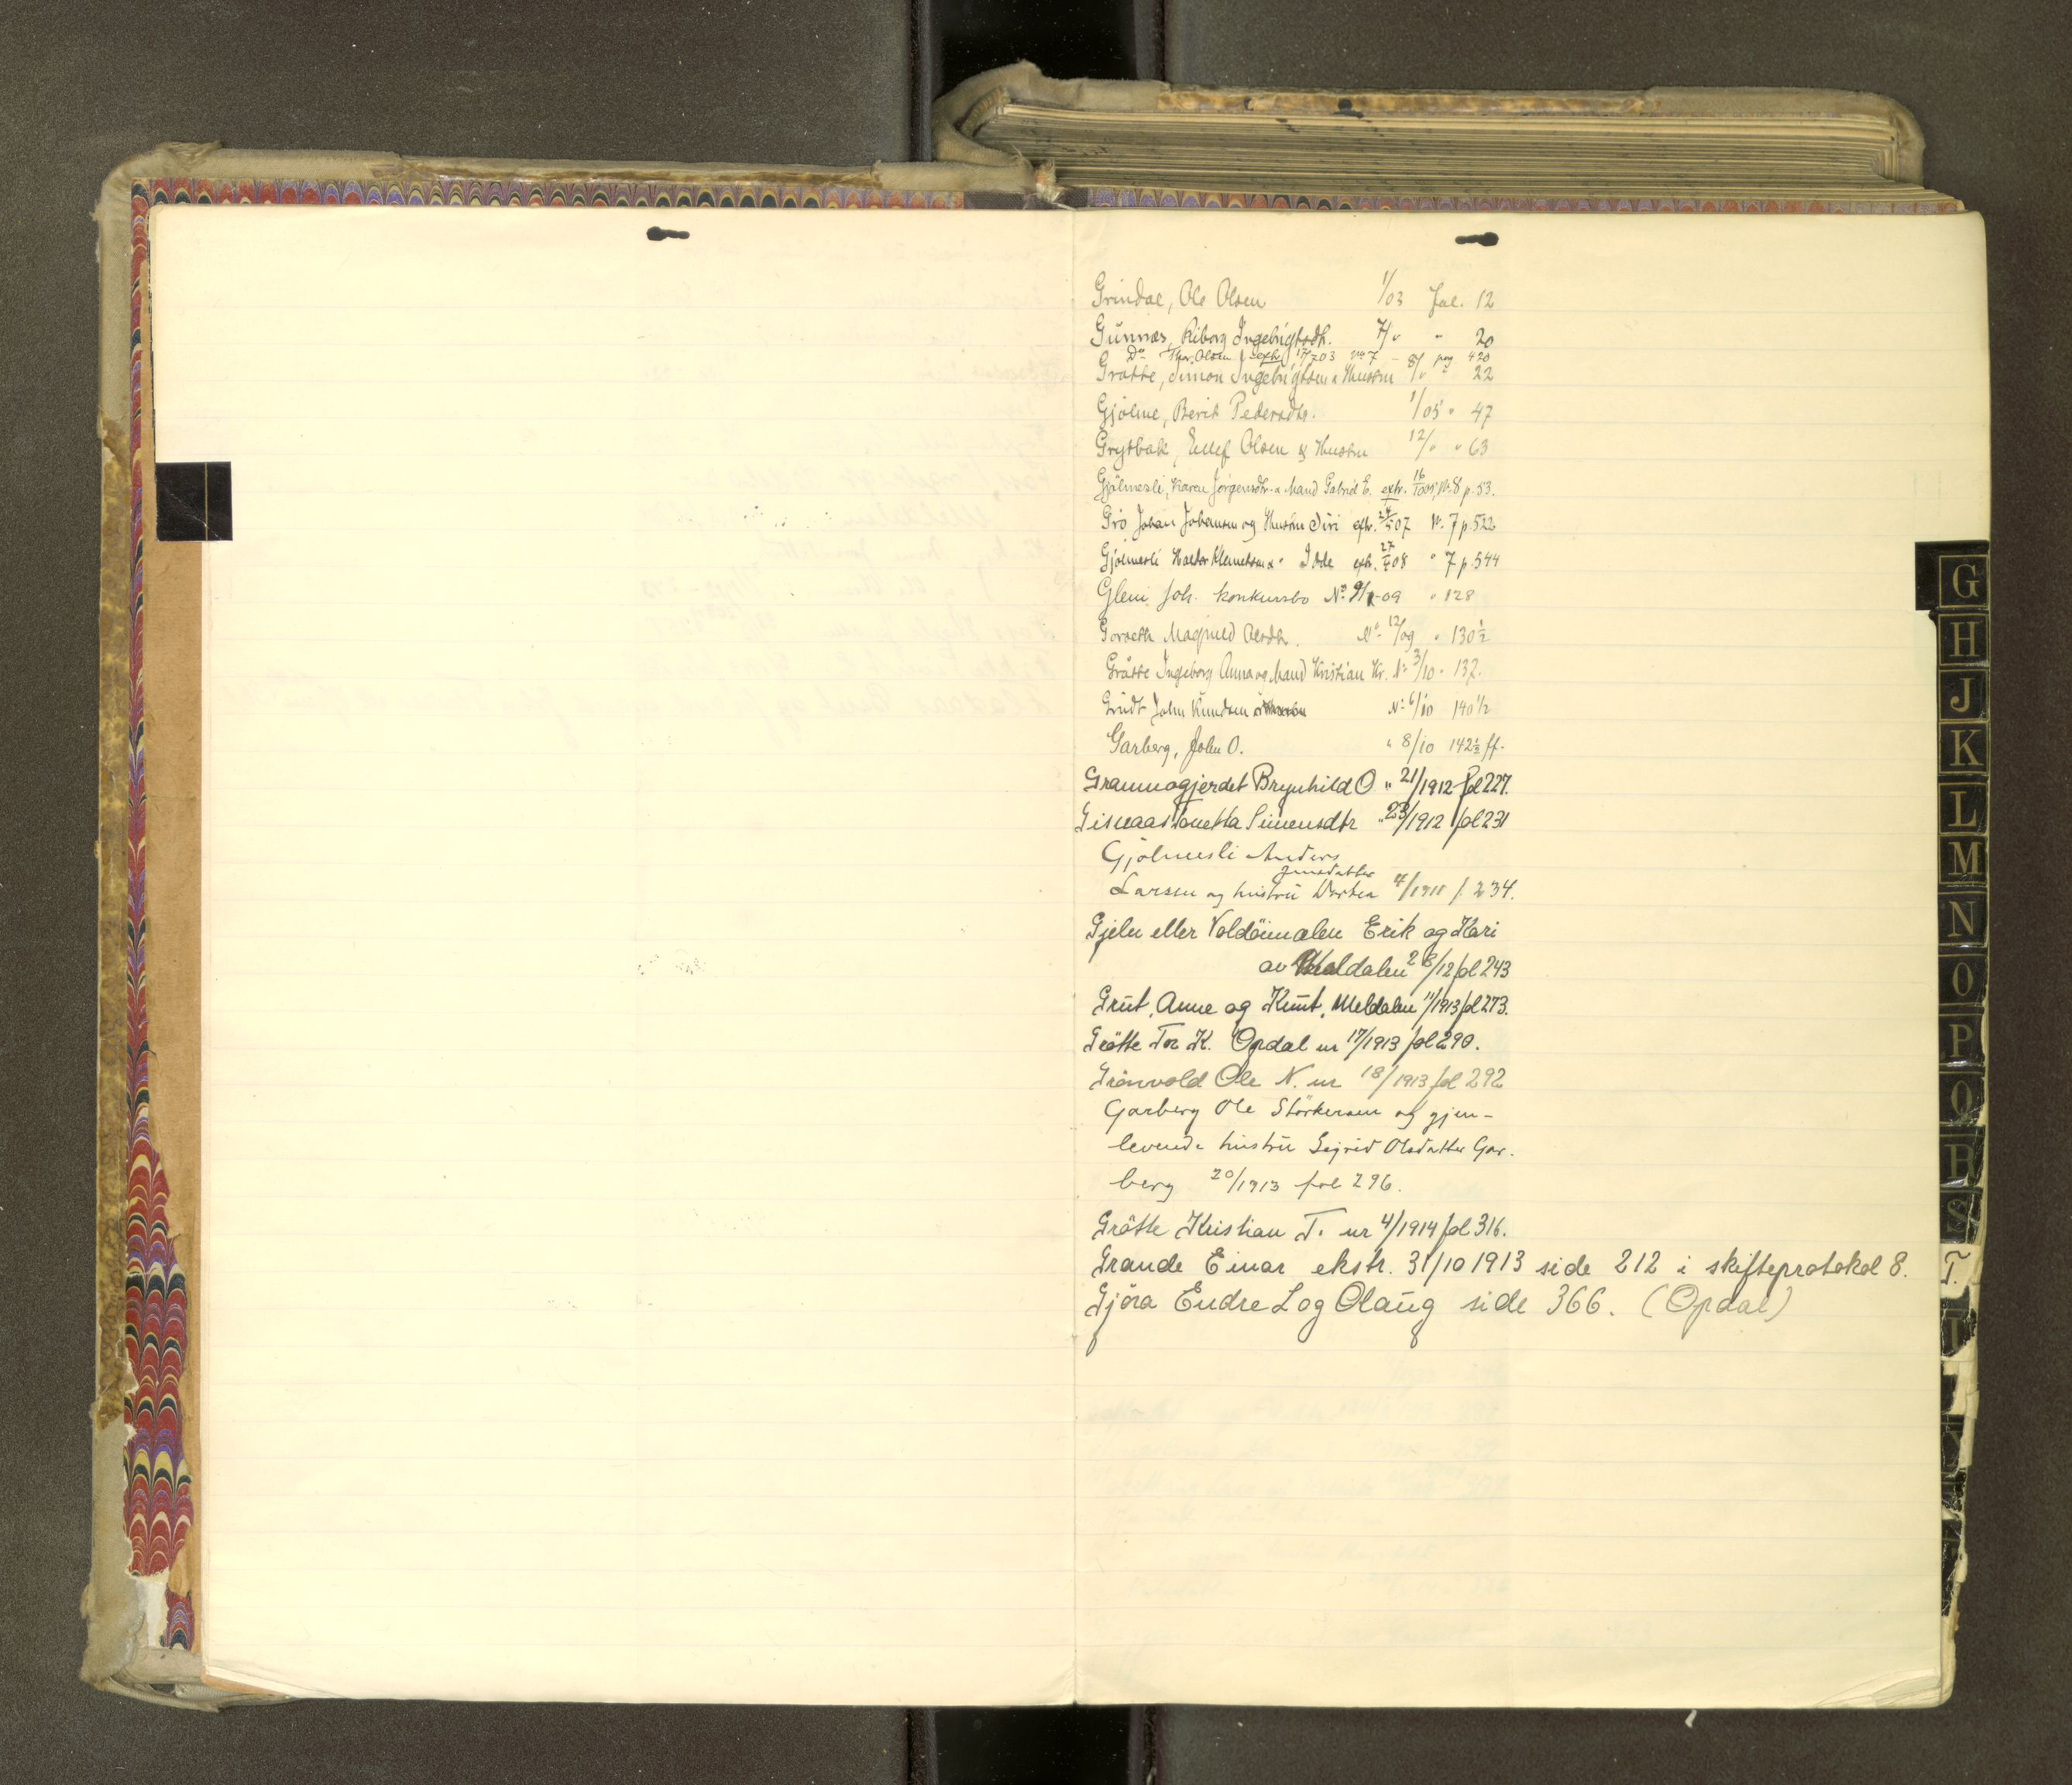 Grindal, Ole Olsen 1/03 fol. 12
Gunnæs, Riborg Ingebrigtsdtr. 7/" " 20
Do Thor Olsen extr. 17/7 03 No 7 pag 420
Gråtte, Simon Ingebrigtsen & Hustru 8/" " 22
Gjølme, Berit Pedersdtr. 1/05 " 47
Grytbak, Ellef Olsen & Hustru 12/" " 63
Gjølmesli, Karen Jørgensdtr. & Mand Gabriel E. extr. 16/10 05, Nr. 8 p. 53.
Gro Johan Johansen og Hustru Siri extr. 07 Nr. 7 p. 522
Gjølmesli Haldor Klemetsen & " extr. 27/ 08 " 7 p. 544
Glein Joh. konkursbo No 9/-09 " 128
Magnild Olsdtr. No 12/09 " 130½
Gråtte Ingeborg Anna og Mand Kristian Kr. No 3/10 " 137.
Grudt John Knudsen No 6/10 140½
Garberg, John O. " 8/10 142½ ff.
Grannagjerdet Brynhild O " 21/1912 fol 227.
Gisnaas Simensdtr " 23/1912 fol 231
Gjølmesli Anders
Jonsdatter
Larsen og hustru Dortea 4/1911 f. 234.
Gjeln eller Erik og Kari
av Meldalen 28/12 fol 243
Grut, Anne og Knut, Meldalen 11/1913 fol 273.
Gråtte Tor K. Opdal nr 17/1913 fol 290.
Grönvold Ole N. nr 18/1913 fol 292
Garberg Ole Størkersen og gjen-
levende hustru Sigrid Olsdatter Gar-
berg 20/1913 fol 296.
Gråtte Kristian T. nr 4/1914 fol 316.
Grande Einar ekstr. 31/10 1913 side 212 i skifteprotokol 8.
Gjöra Endre L og Olaug side 366. (Opdal)
G
H
J
K
L
M
N
O
P
Q
R
S
T.